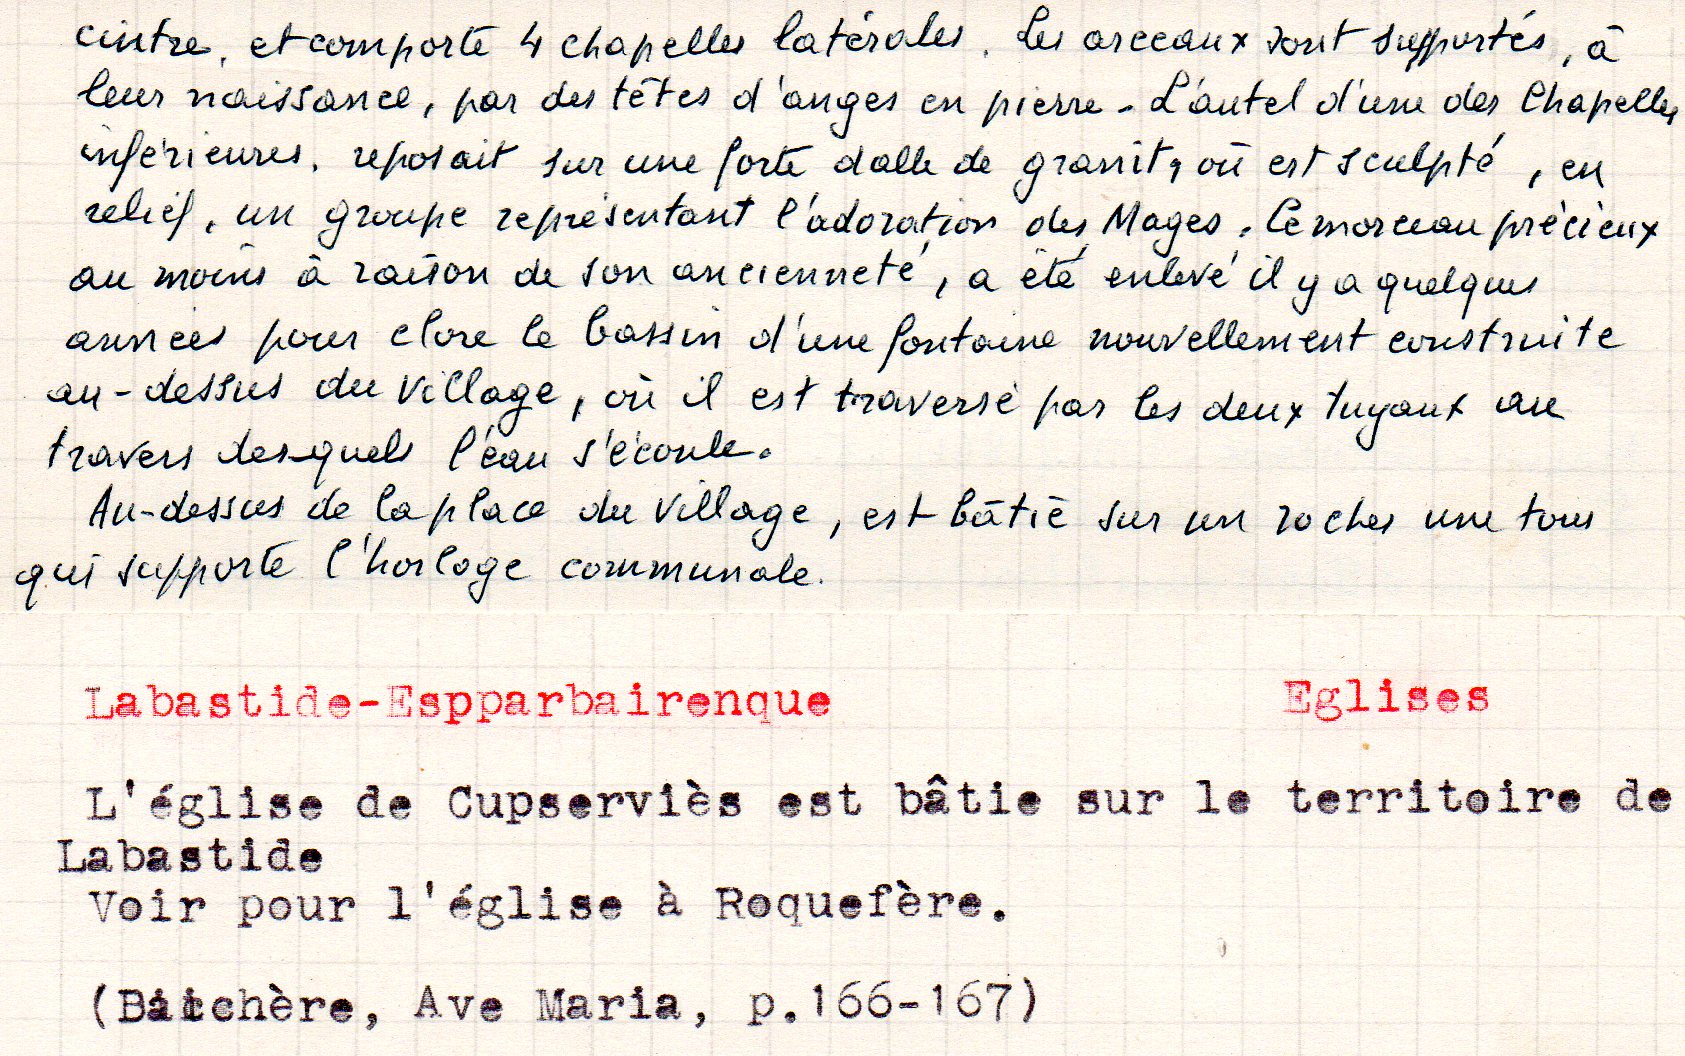 cintre, et comporte 4 chapelles latérales. Les arceaux sont supportés, à
leur naissance, par des têtes d'anges en pierre - L'autel d'une des Chapelles
inférieures. reposait sur une forte dalle de granit, où est sculpté, en
relief, un groupe représentant l'adoration des Mages. Ce morceau précieux
au moins à raison de son ancienneté, a été enlevé il y a quelques
années pour clore le bassin d'une fontaine nouvellement construite
au-dessus du village, où il est traversé par les deux tuyaux au
travers desquels l'eau s'écoule.
Au-dessus de la place du village, est bâtie sur un rocher une tour
qui supporte l'horloge communale.
Labastide-Espparbairenque Eglises
L'église de Cupserviès est bâtie sur le territoire de
Labastide
Voir pour l'église à Roquefère.
(Baichère, Ave Maria, p.166-167)